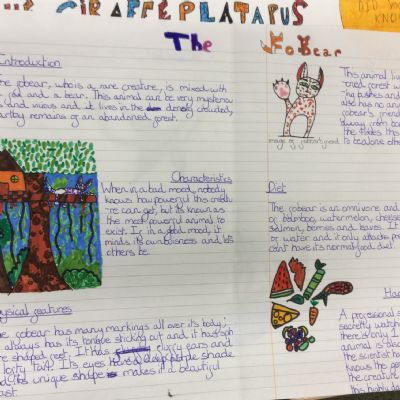 GIRAFFE PLATAPUS
The FoBear
KNOW
Introduction
The fobear, who is a rare creature, is mixed with
fox and a bear. This animal can be very mysterious
and vicious and it lives in the densly clouded,
earthy remains of an abandoned forest.
Characteristics
When in a bad mood, nobody
knows how powerful this creatu
-re can get, but its known as
the most powerful animal to
exist. If in a good mood, it
minds its own buisness and lets
others be.
Physical features
The fobear has many markings all over its body;
always has its tongue sticking out and it has
shaped feet. It has floppy ears and
lofty tail. Its eyes have a deep purple shade
and its unique shape makes it a beautiful
beast.
image of fobear's friend
This animal live
forest w
bushes and
also has no ani
fobear's friend
away from bo
the fobear this
to loads one
Diet
The fobear is an omnivore and
of bamboo, watermelon, cheese
salmon, berries and leaves. It
of water and it only attacks pr
cant have its normal good diet.
Ha
A professional s
secretly watch
there is only
animal is blac
the scientist ba
knows the per
the creature
this highly da